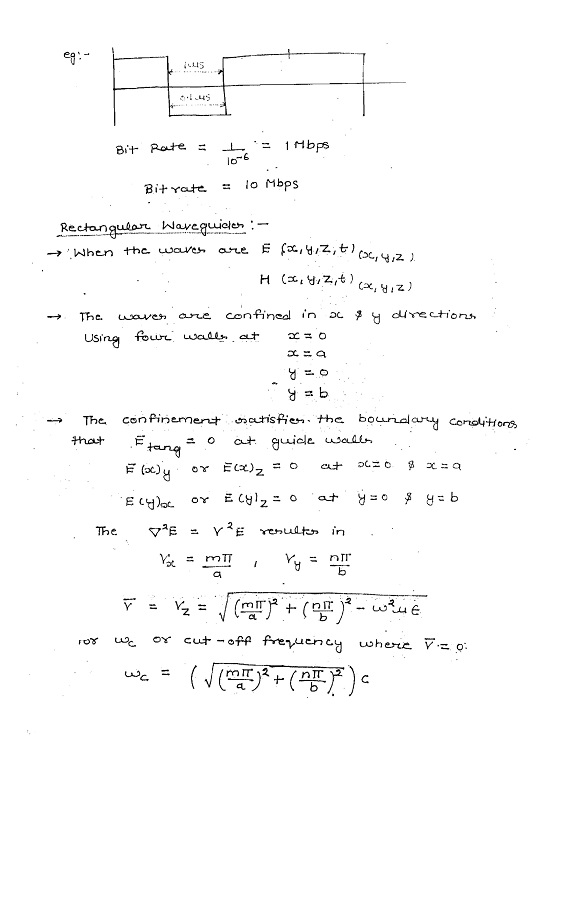 eg:-
1μs
0.1μs
Bit Rate = 1/10⁻⁶ = 1 Mbps
Bit rate = 10 Mbps
Rectangular Waveguides :-
→ When the waves are E (x,y,z,t) (x,y,z)
H (x,y,z,t) (x,y,z)
→ The waves are confined in x & y directions
Using four walls at x = 0
x = a
y = 0
y = b
→ The confinement satisfies the boundary conditions
that E̅tang = 0 at guide walls
E̅(x)y or E̅(x)z = 0 at x=0 & x=a
E(y)x or E(y)z = 0 at y=0 & y=b
The ∇²E = γ²E results in
γx = mπ/a , γy = nπ/b
γ̅ = γz = √((mπ/a)² + (nπ/b)² - ω²με)
for ωc or cut-off frequency where γ̅ = 0.
ωc = (√((mπ/a)² + (nπ/b)²)) c